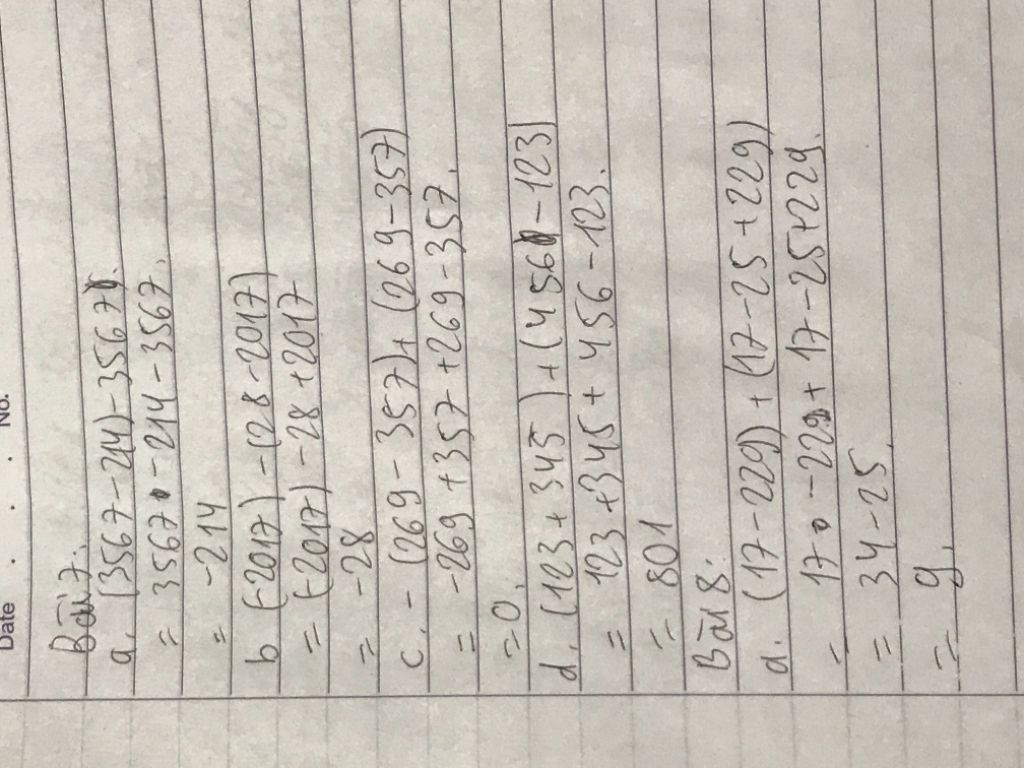 Date . . . No.
Bài 7.
a. (3567-214)-3567.
= 3567-214-3567.
= -214
b (-2017)-(28-2017)
= (-2017)-28+2017
= -28
c. -(269-357)+(269-357)
= -269+357+269-357.
= 0.
d. (123+345)+(456-123)
= 123+345+456-123.
= 801
Bài 8.
a. (17-229)+(17-25+229)
= 17-229+17-25+229.
= 34-25.
= 9.